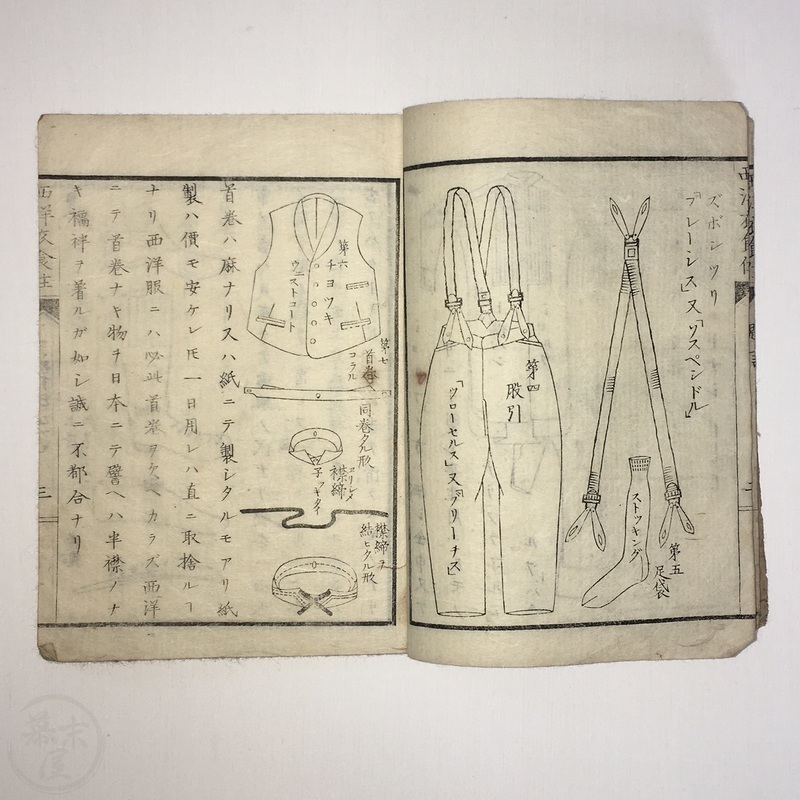 ズボンツリ
「ブレーシス」又「ソスペンドル」
第五
足袋
ストッキング
第四
股引
「ツローセルス」又「ブリーチス」
第七
首巻
コラル
第六
チヨツキ
ウエストコート
同巻タル形
襟締
エリシメ
子ッキタイ
襟締ヲ
結ヒタル形
首巻ハ麻ナリ又ハ紙ニテ製シタルモアリ紙
製ハ價モ安ケレ𪜈一日用レハ直ニ取捨ルヿ
ナリ西洋服ニハ必此首巻ヲ欠ベカラズ西洋
ニテ首巻ナキ物ヲ日本ニテ譬ヘハ半襟ノナ
キ襦袢ヲ着ルガ如シ誠ニ不都合ナリ
西洋衣食住
三
幕末屋